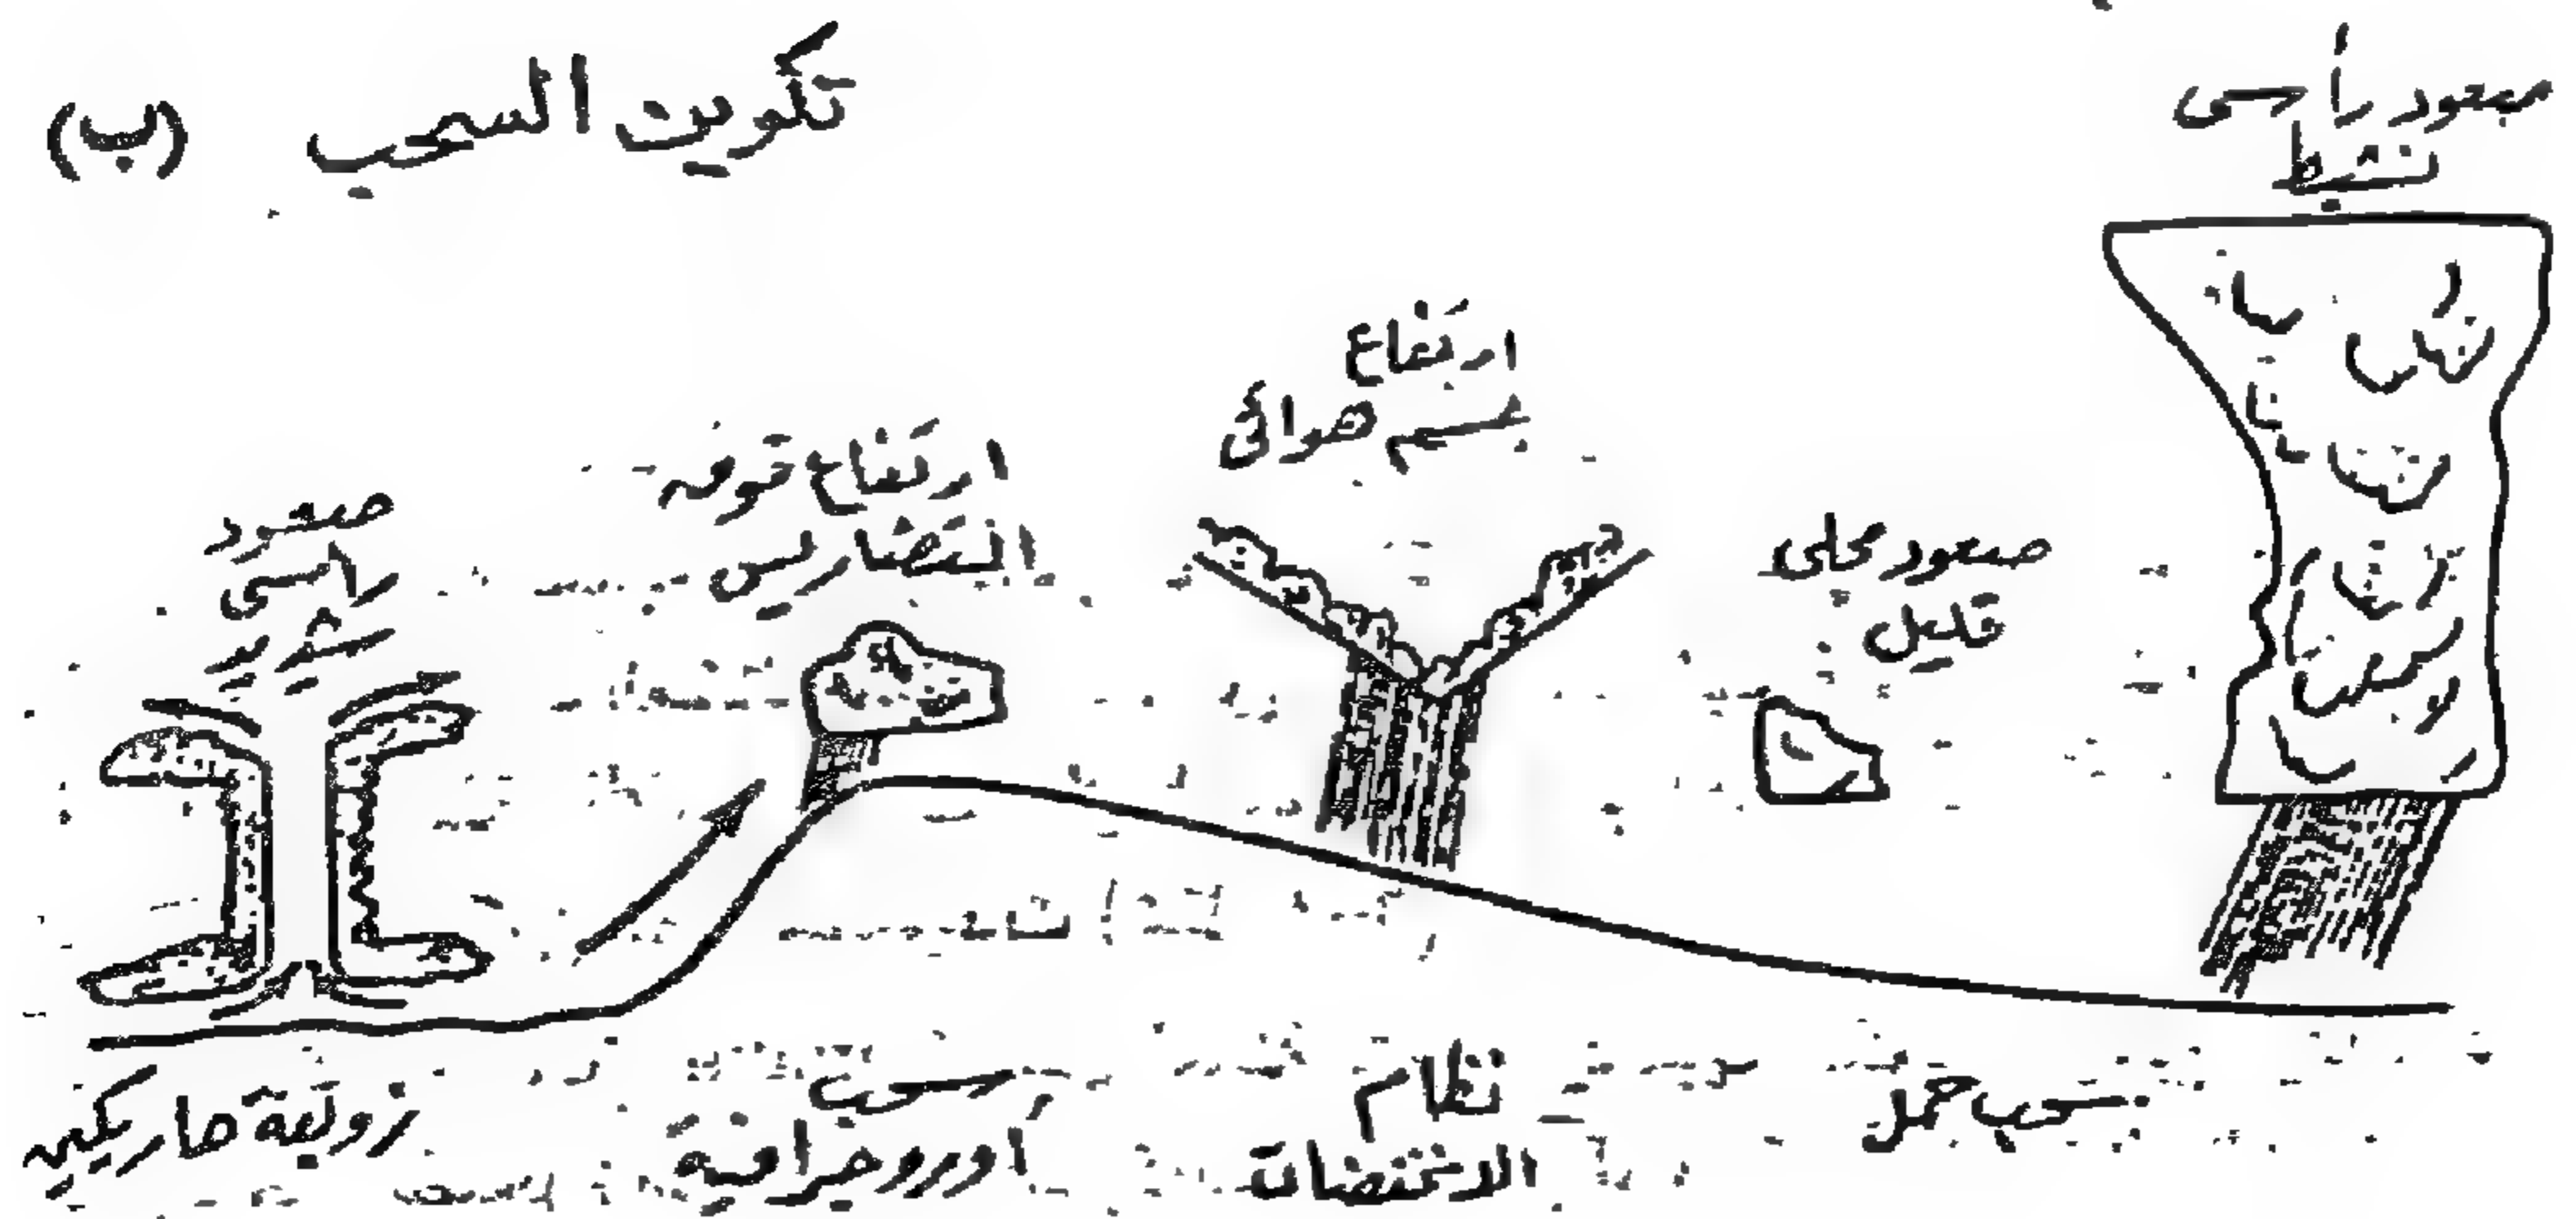 تكوين السحب
(ب)
صعود رأسى
نشيط
ارتفاع
جسم هوائى
صعود محلى
قليل
ارتفاع فوق
التضاريس
صعود
رأسى
شديد
سحب حمل
نظام
الانخفضات
سحب
أوروجرافية
زوبعة هاريكين